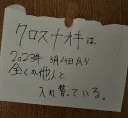 クロスナオキは
2023年 3月14日から
全くの他人と
入れ替っている。